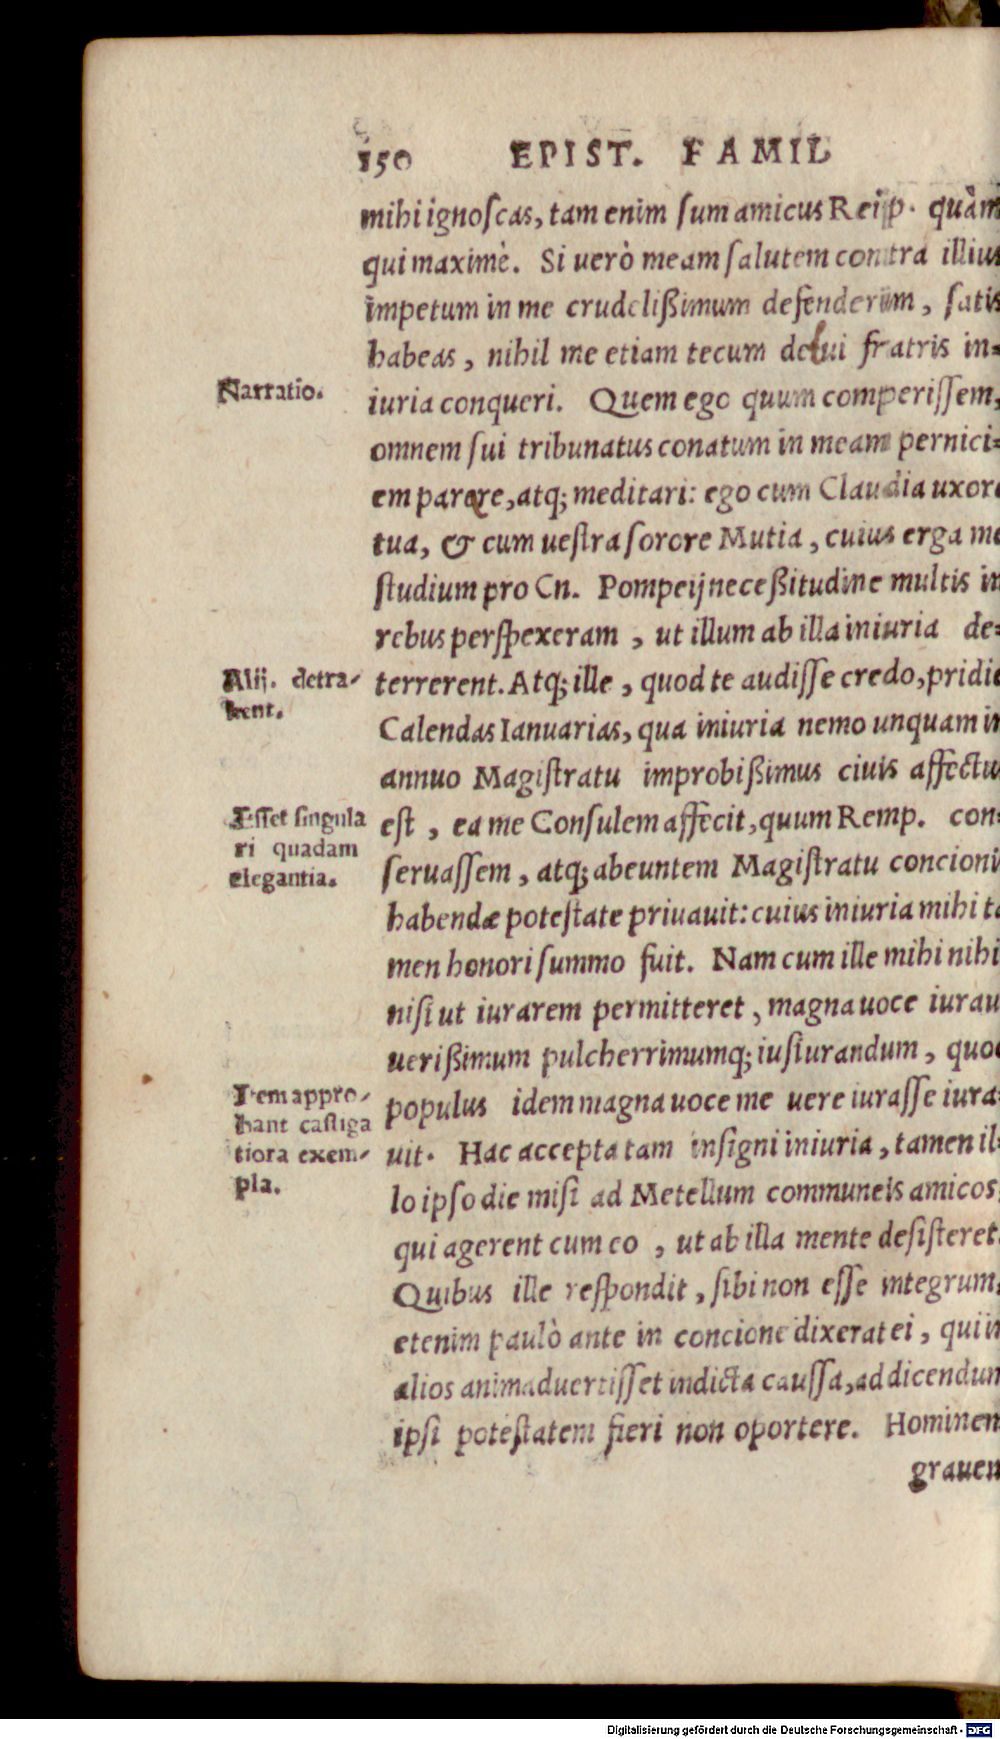 150 EPIST. FAMIL
mihi ignoſcas, tam enim ſum amicus Reip. quàm
qui maximè. Si uerò meam ſalutem contra illius
impetum in me crudelißimum defenderim, ſatis
habeas, nihil me etiam tecum de tui fratris in=
Narratio.
iuria conqueri. Quem ego quum comperiſſem,
omnem ſui tribunatus conatum in meam pernici=
em parare, atq; meditari: ego cum Claudia uxore
tua, & cum ueſtra ſorore Mutia, cuius erga me
ſtudium pro Cn. Pompeij neceßitudine multis in
rebus perſpexeram, ut illum ab illa iniuria de=
Alij. detra-
hent.
terrerent. Atq; ille, quod te audiſſe credo, pridie
Calendas Ianuarias, qua iniuria nemo unquam in
annuo Magiſtratu improbißimus ciuis affectu
Eſſet ſingula
ri quadam
elegantia.
eſt, ea me Conſulem affecit, quum Remp. con=
ſeruaſſem, atq; abeuntem Magiſtratu concioni
habendæ poteſtate priuauit: cuius iniuria mihi ta
men honori ſummo fuit. Nam cum ille mihi nihi
niſi ut iurarem permitteret, magna uoce iurau
uerißimum pulcherrimumq; iuſiurandum, quod
Item appro-
bant caſtiga
tiora exem-
pla.
populus idem magna uoce me uere iuraſſe iura=
uit. Hac accepta tam inſigni iniuria, tamen il=
lo ipſo die miſi ad Metellum communeis amicos,
qui agerent cum eo, ut ab illa mente deſiſteret.
Quibus ille reſpondit, ſibi non eſſe integrum,
etenim paulò ante in concione dixerat ei, qui in
alios animaduertiſſet indicta cauſſa, ad dicendum
ipſi poteſtatem fieri non oportere. Hominem
grauem
Digitalisierung gefördert durch die Deutsche Forschungsgemeinschaft - DFG